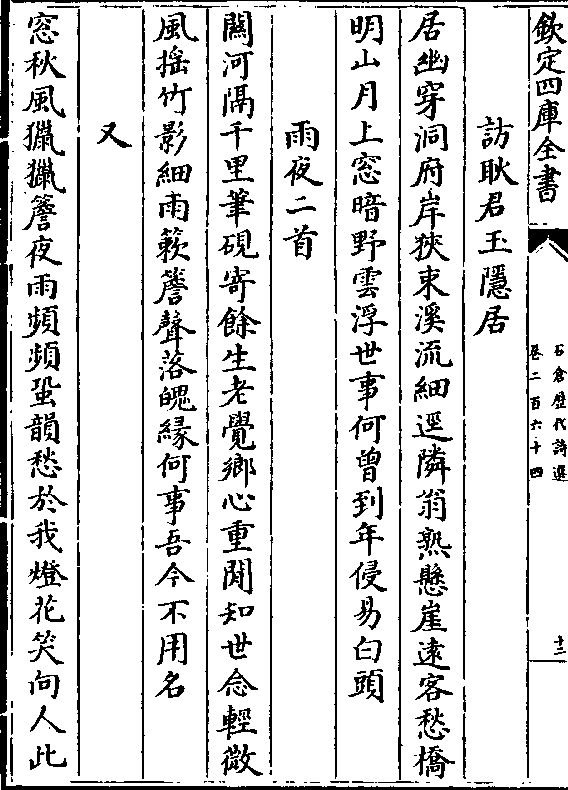 欽定四庫全書
石倉歷代詩選
卷二百六十四
十三
訪耿君玉隱居
居幽穿洞府岸狹束溪流細逕隣翁熟懸崖遠客愁橋
明山月上窓暗野雲浮世事何曾到年侵易白頭
雨夜二首
關河隔千里筆硯寄餘生老覺鄉心重閒知世念輕微
風揺竹影細雨簌簷聲落魄縁何事吾今不用名
又
窓秋風獵獵簷夜雨頻頻蛩韻愁於我燈花笑向人此